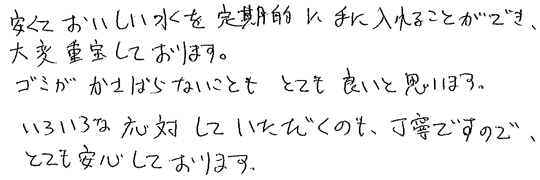 安くておいしい水を定期的に手に入れることができ、
大変重宝しております。
ゴミがかさばらないこともとても良いと思います。
いろいろな応対していただくのも、丁寧ですので、
とても安心しております。